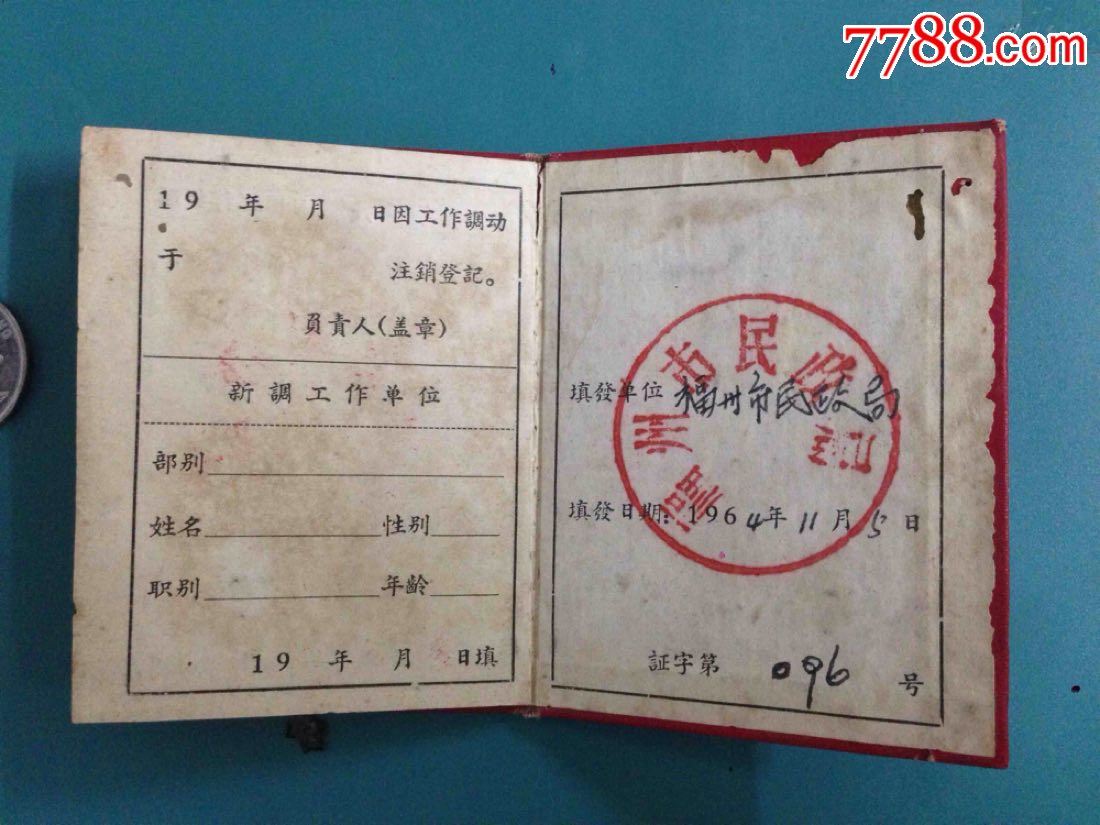 7788.com
19 年 月 日因工作調动
于 注銷登記。
負責人(盖章)
新調工作单位
部别
姓名 性别
职别 年齡
19 年 月 日填
福州市民政局
填發单位 福州市民政局
填發日期: 1964年11月5日
証字第 096 号